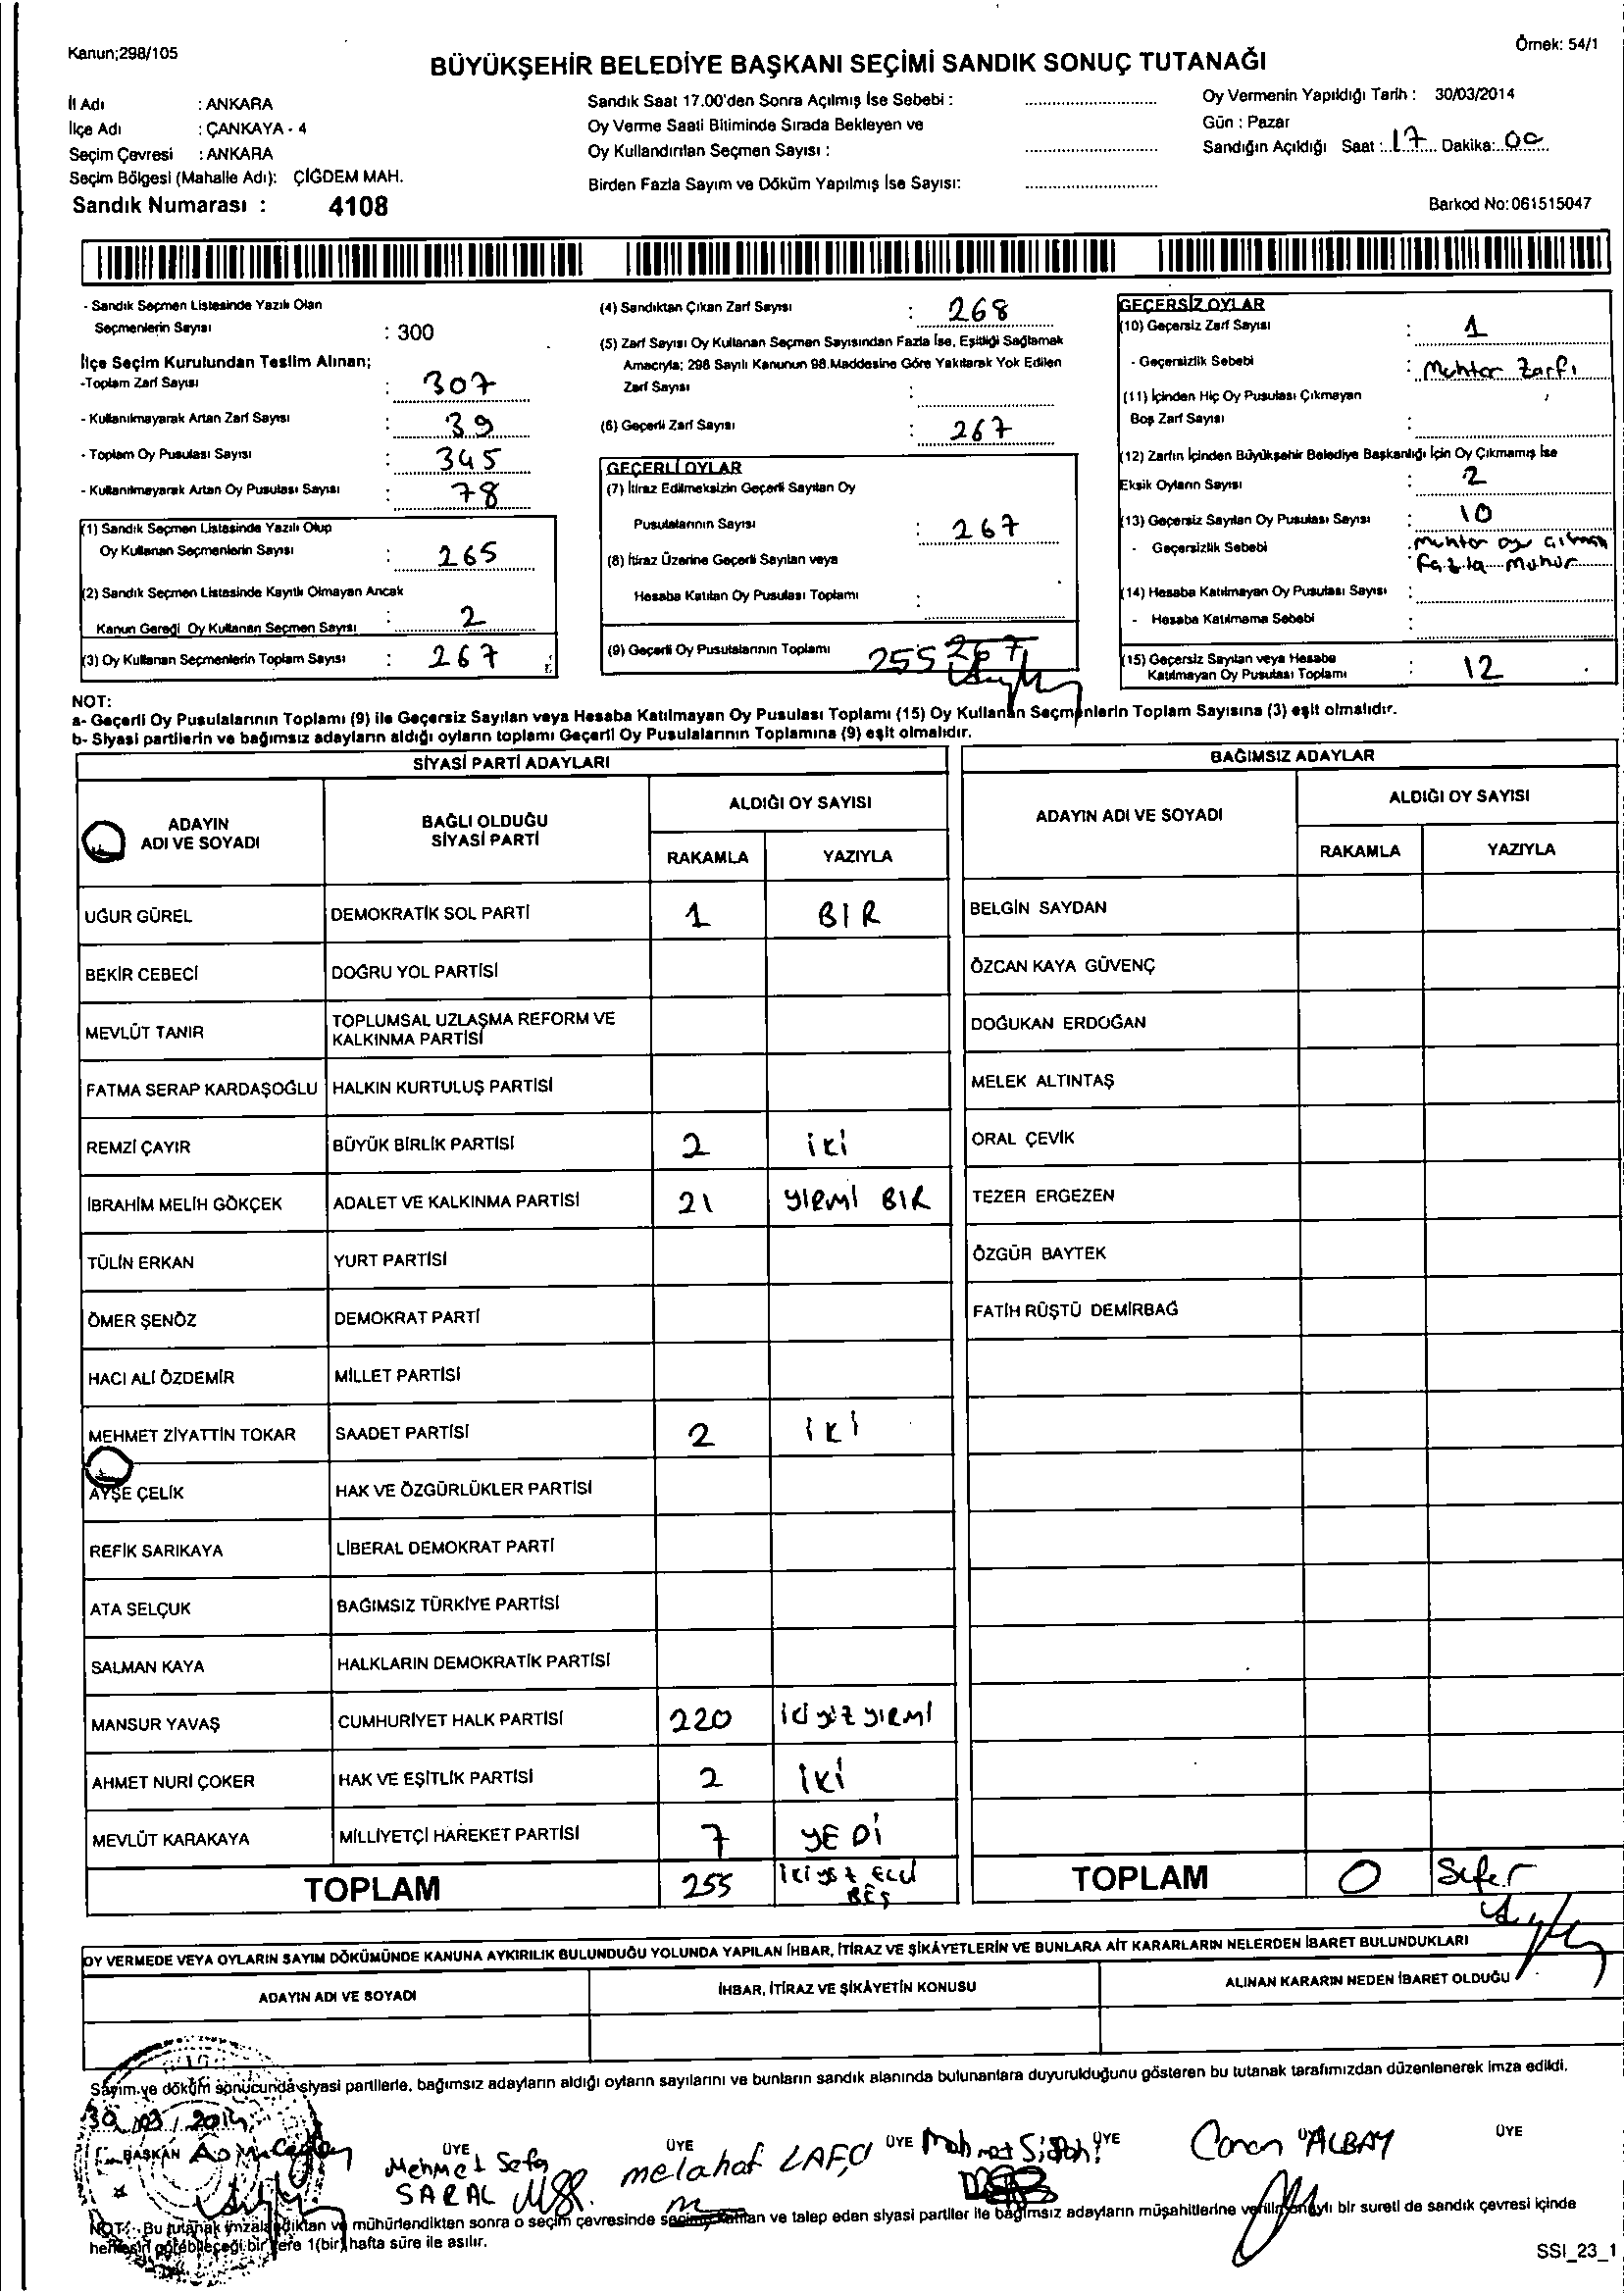 Kanun;298/105
Örnek: 54/1
BÜYÜKŞEHİR BELEDİYE BAŞKANI SEÇİMİ SANDIK SONUÇ TUTANAĞI
İl Adı : ANKARA
İlçe Adı : ÇANKAYA - 4
Seçim Çevresi : ANKARA
Seçim Bölgesi (Mahalle Adı): ÇİĞDEM MAH.
Sandık Numarası : 4108
Sandık Saat 17.00'den Sonra Açılmış İse Sebebi :
Oy Verme Saati Bitiminde Sırada Bekleyen ve
Oy Kullandırılan Seçmen Sayısı :
Birden Fazla Sayım ve Döküm Yapılmış İse Sayısı:
Oy Vermenin Yapıldığı Tarih : 30/03/2014
Gün : Pazar
Sandığın Açıldığı Saat : 17 Dakika: 00
Barkod No:061515047
- Sandık Seçmen Listesinde Yazılı Olan
Seçmenlerin Sayısı : 300
İlçe Seçim Kurulundan Teslim Alınan;
-Toplam Zarf Sayısı : 307
- Kullanılmayarak Artan Zarf Sayısı : 39
- Toplam Oy Pusulası Sayısı : 345
- Kullanılmayarak Artan Oy Pusulası Sayısı : 78
(1) Sandık Seçmen Listesinde Yazılı Olup
Oy Kullanan Seçmenlerin Sayısı : 265
(2) Sandık Seçmen Listesinde Kayıtlı Olmayan Ancak
Kanun Gereği Oy Kullanan Seçmen Sayısı : 2
(3) Oy Kullanan Seçmenlerin Toplam Sayısı : 267
(4) Sandıktan Çıkan Zarf Sayısı : 268
(5) Zarf Sayısı Oy Kullanan Seçmen Sayısından Fazla İse, Eşitliği Sağlamak
Amacıyla; 298 Sayılı Kanunun 98.Maddesine Göre Yakılarak Yok Edilen
Zarf Sayısı :
(6) Geçerli Zarf Sayısı : 267
GEÇERLİ OYLAR
(7) İtiraz Edilmeksizin Geçerli Sayılan Oy
Pusulalarının Sayısı : 267
(8) İtiraz Üzerine Geçerli Sayılan veya
Hesaba Katılan Oy Pusulası Toplamı :
(9) Geçerli Oy Pusulalarının Toplamı 255 267
GEÇERSİZ OYLAR
(10) Geçersiz Zarf Sayısı : 1
- Geçersizlik Sebebi : Muhtar Zarfı
(11) İçinden Hiç Oy Pusulası Çıkmayan
Boş Zarf Sayısı :
(12) Zarfın İçinden Büyükşehir Belediye Başkanlığı İçin Oy Çıkmamış İse
Eksik Oyların Sayısı : 2
(13) Geçersiz Sayılan Oy Pusulası Sayısı : 10
- Geçersizlik Sebebi : muhtar oyu
Fazla Mühür
(14) Hesaba Katılmayan Oy Pusulası Sayısı :
- Hesaba Katılmama Sebebi :
(15) Geçersiz Sayılan veya Hesaba
Katılmayan Oy Pusulası Toplamı : 12
NOT:
a- Geçerli Oy Pusulalarının Toplamı (9) ile Geçersiz Sayılan veya Hesaba Katılmayan Oy Pusulası Toplamı (15) Oy Kullanan Seçmenlerin Toplam Sayısına (3) eşit olmalıdır.
b- Siyasi partilerin ve bağımsız adayların aldığı oyların toplamı Geçerli Oy Pusulalarının Toplamına (9) eşit olmalıdır.
SİYASİ PARTİ ADAYLARI
ADAYIN ADI VE SOYADI BAĞLI OLDUĞU SİYASİ PARTİ ALDIĞI OY SAYISI
RAKAMLA YAZIYLA
UĞUR GÜREL DEMOKRATİK SOL PARTİ 1 BIR
BEKİR CEBECİ DOĞRU YOL PARTİSİ
MEVLÜT TANIR TOPLUMSAL UZLAŞMA REFORM VE KALKINMA PARTİSİ
FATMA SERAP KARDAŞOĞLU HALKIN KURTULUŞ PARTİSİ
REMZİ ÇAYIR BÜYÜK BİRLİK PARTİSİ 2 iki
İBRAHİM MELİH GÖKÇEK ADALET VE KALKINMA PARTİSİ 21 YIRMI BIR
TÜLİN ERKAN YURT PARTİSİ
ÖMER ŞENÖZ DEMOKRAT PARTİ
HACI ALİ ÖZDEMİR MİLLET PARTİSİ
MEHMET ZİYATTİN TOKAR SAADET PARTİSİ 2 iki
AYŞE ÇELİK HAK VE ÖZGÜRLÜKLER PARTİSİ
REFİK SARIKAYA LİBERAL DEMOKRAT PARTİ
ATA SELÇUK BAĞIMSIZ TÜRKİYE PARTİSİ
SALMAN KAYA HALKLARIN DEMOKRATİK PARTİSİ
MANSUR YAVAŞ CUMHURİYET HALK PARTİSİ 220 iki yüz YIRMI
AHMET NURİ ÇOKER HAK VE EŞİTLİK PARTİSİ 2 iki
MEVLÜT KARAKAYA MİLLİYETÇİ HAREKET PARTİSİ 7 YEDİ
TOPLAM 255 iki yüz ELLİ BEŞ
BAĞIMSIZ ADAYLAR
ADAYIN ADI VE SOYADI ALDIĞI OY SAYISI
RAKAMLA YAZIYLA
BELGİN SAYDAN
ÖZCAN KAYA GÜVENÇ
DOĞUKAN ERDOĞAN
MELEK ALTINTAŞ
ORAL ÇEVİK
TEZER ERGEZEN
ÖZGÜR BAYTEK
FATİH RÜŞTÜ DEMİRBAĞ
TOPLAM 0 Sıfır
OY VERMEDE VEYA OYLARIN SAYIM DÖKÜMÜNDE KANUNA AYKIRILIK BULUNDUĞU YOLUNDA YAPILAN İHBAR, İTİRAZ VE ŞİKÂYETLERİN VE BUNLARA AİT KARARLARIN NELERDEN İBARET BULUNDUKLARI
ADAYIN ADI VE SOYADI İHBAR, İTİRAZ VE ŞİKÂYETİN KONUSU ALINAN KARARIN NEDEN İBARET OLDUĞU
Sayım ve döküm sonucunda siyasi partilerle, bağımsız adayların aldığı oyların sayılarını ve bunların sandık alanında bulunanlara duyurulduğunu gösteren bu tutanak tarafımızdan düzenlenerek imza edildi.
30/03/2014
BAŞKAN ÜYE ÜYE ÜYE ÜYE ÜYE ÜYE
Mehmet Sefa SARAL
melahat LAFÇI
Caner ALBAY
NOT:- Bu tutanak imzalandıktan ve mühürlendikten sonra o seçim çevresinde seçime katılan ve talep eden siyasi partiler ile bağımsız adayların müşahitlerine verilir, onaylı bir sureti de sandık çevresi içinde
herkesin görebileceği bir yere 1(bir) hafta süre ile asılır.
SSI_23_1